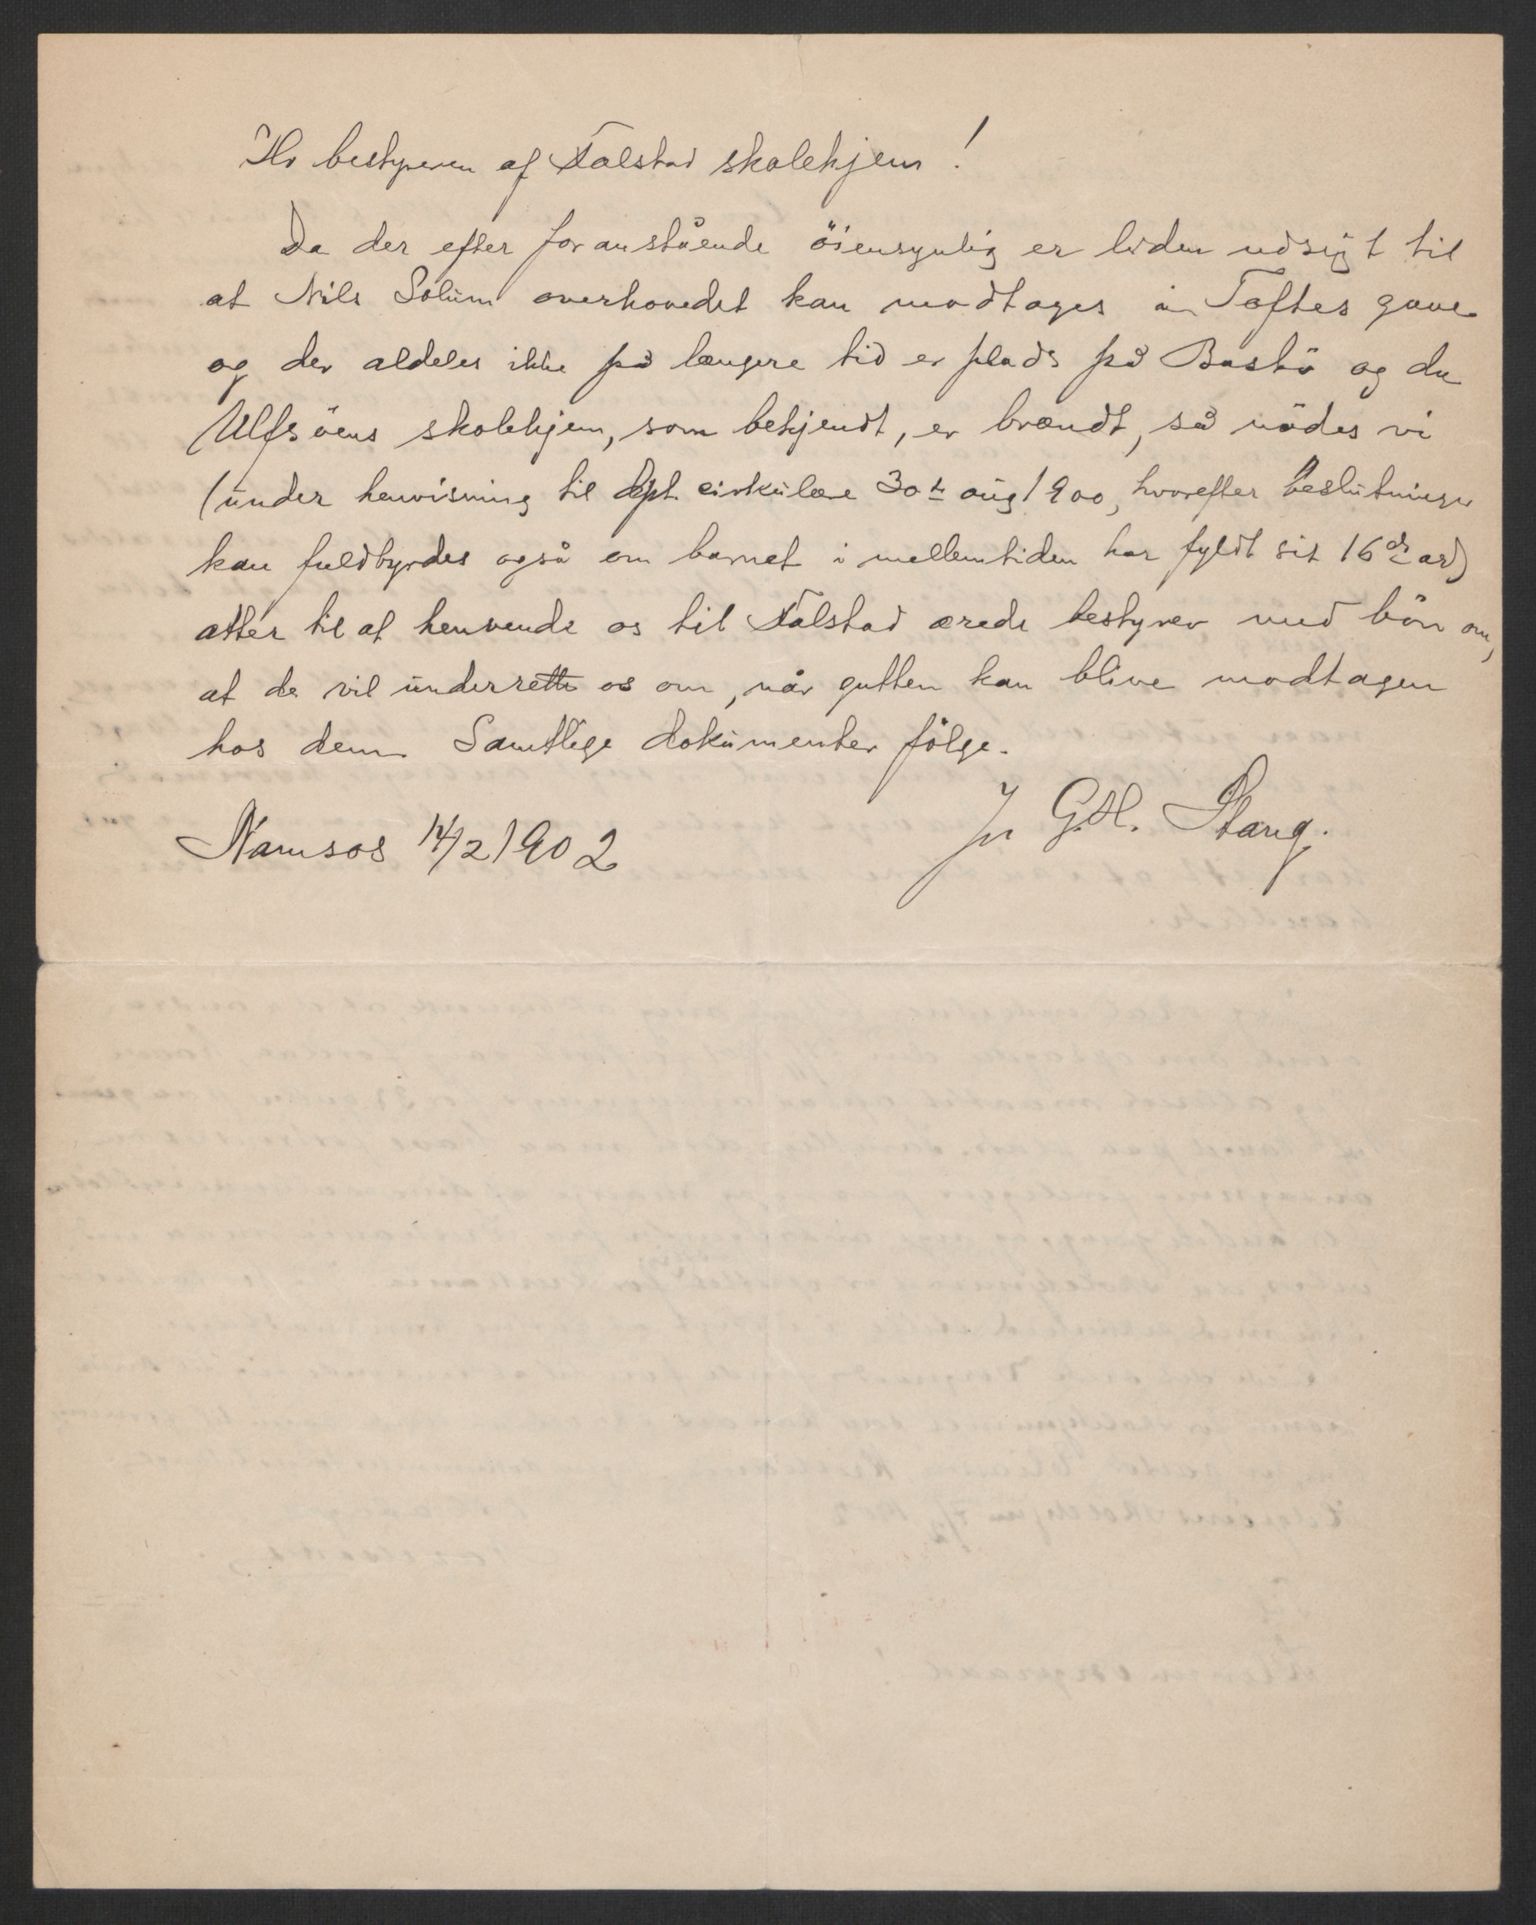 Hr bestyreren af Falstad skolehjem!
Da der efter foranstående öiensynlig er liden udsigt til
at Nils Solum overhovedet kan modtages i Toftes gave
og der aldeles ikke på længere tid er plads på Bastö og da
Ulfsöens skolehjem, som bekjendt, er brændt, så nödes vi
(under henvisning til dept cirkulære 30te aug 1900, hvorefter beslutninger
kan fuldbyrdes også om barnet i mellemtiden har fyldt sit 16de år)
atter til at henvende os til Falstad ærede bestyrer med bön om,
at de vil underrette os om, når gutten kan blive modtagen
hos dem. Samtlige dokumenter fölge.
Namsos 14/2 1902
G.H. Stang.